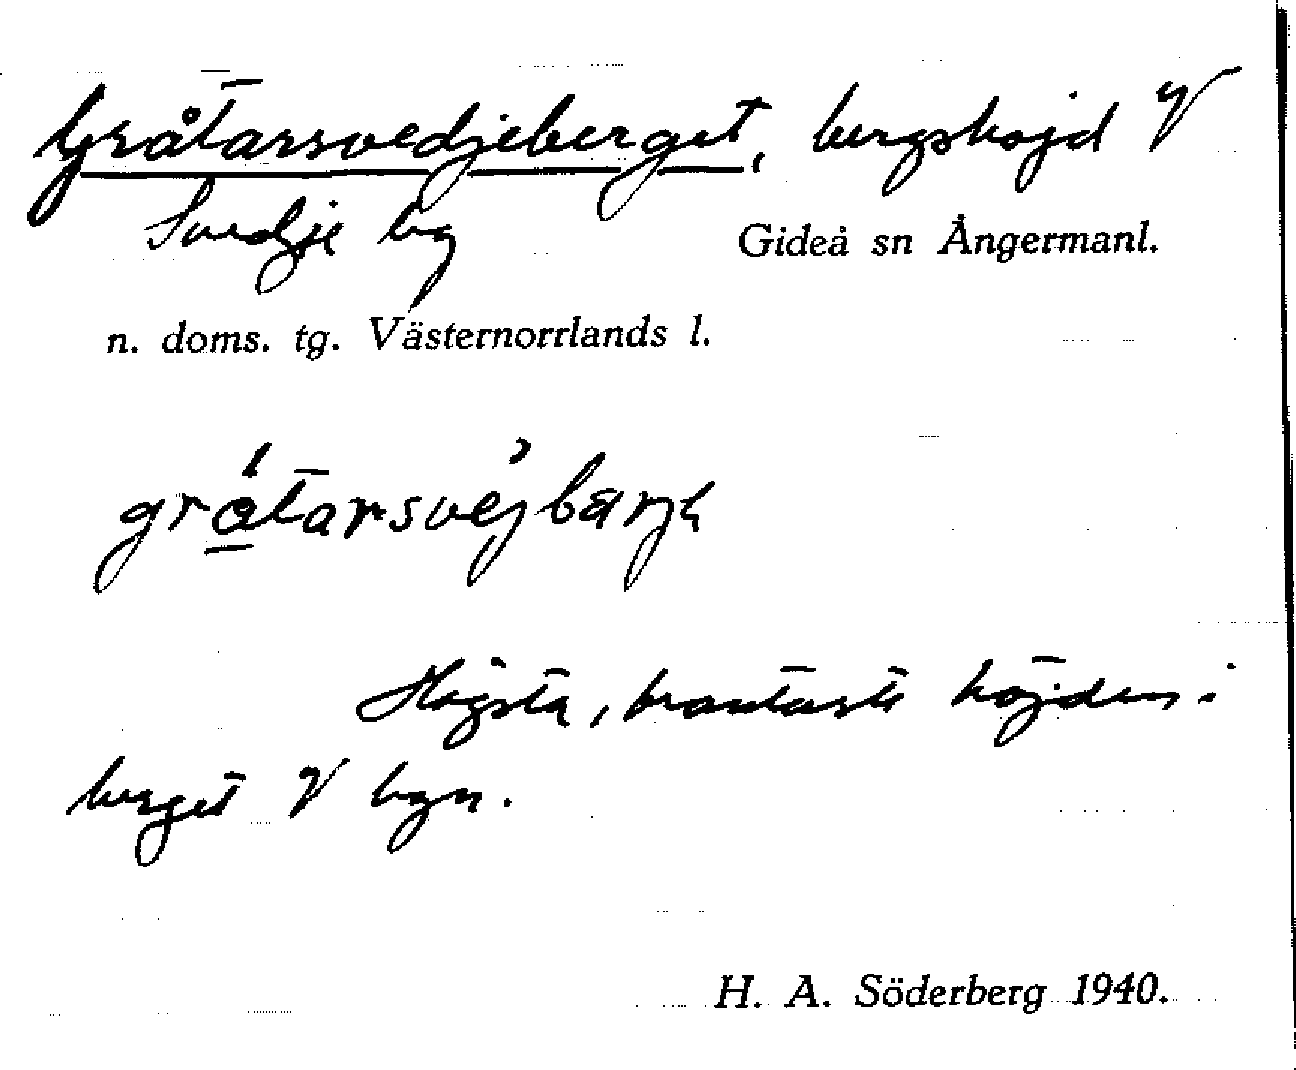 Gråtarsvedjeberget, bergshöjd V
Svedje by
Gideå sn Ångermanl.
n. doms. tg. Västernorrlands l.
gråtarsvejbärjɛ
Högsta, brantaste höjden i
berget V byn.
H. A. Söderberg 1940.